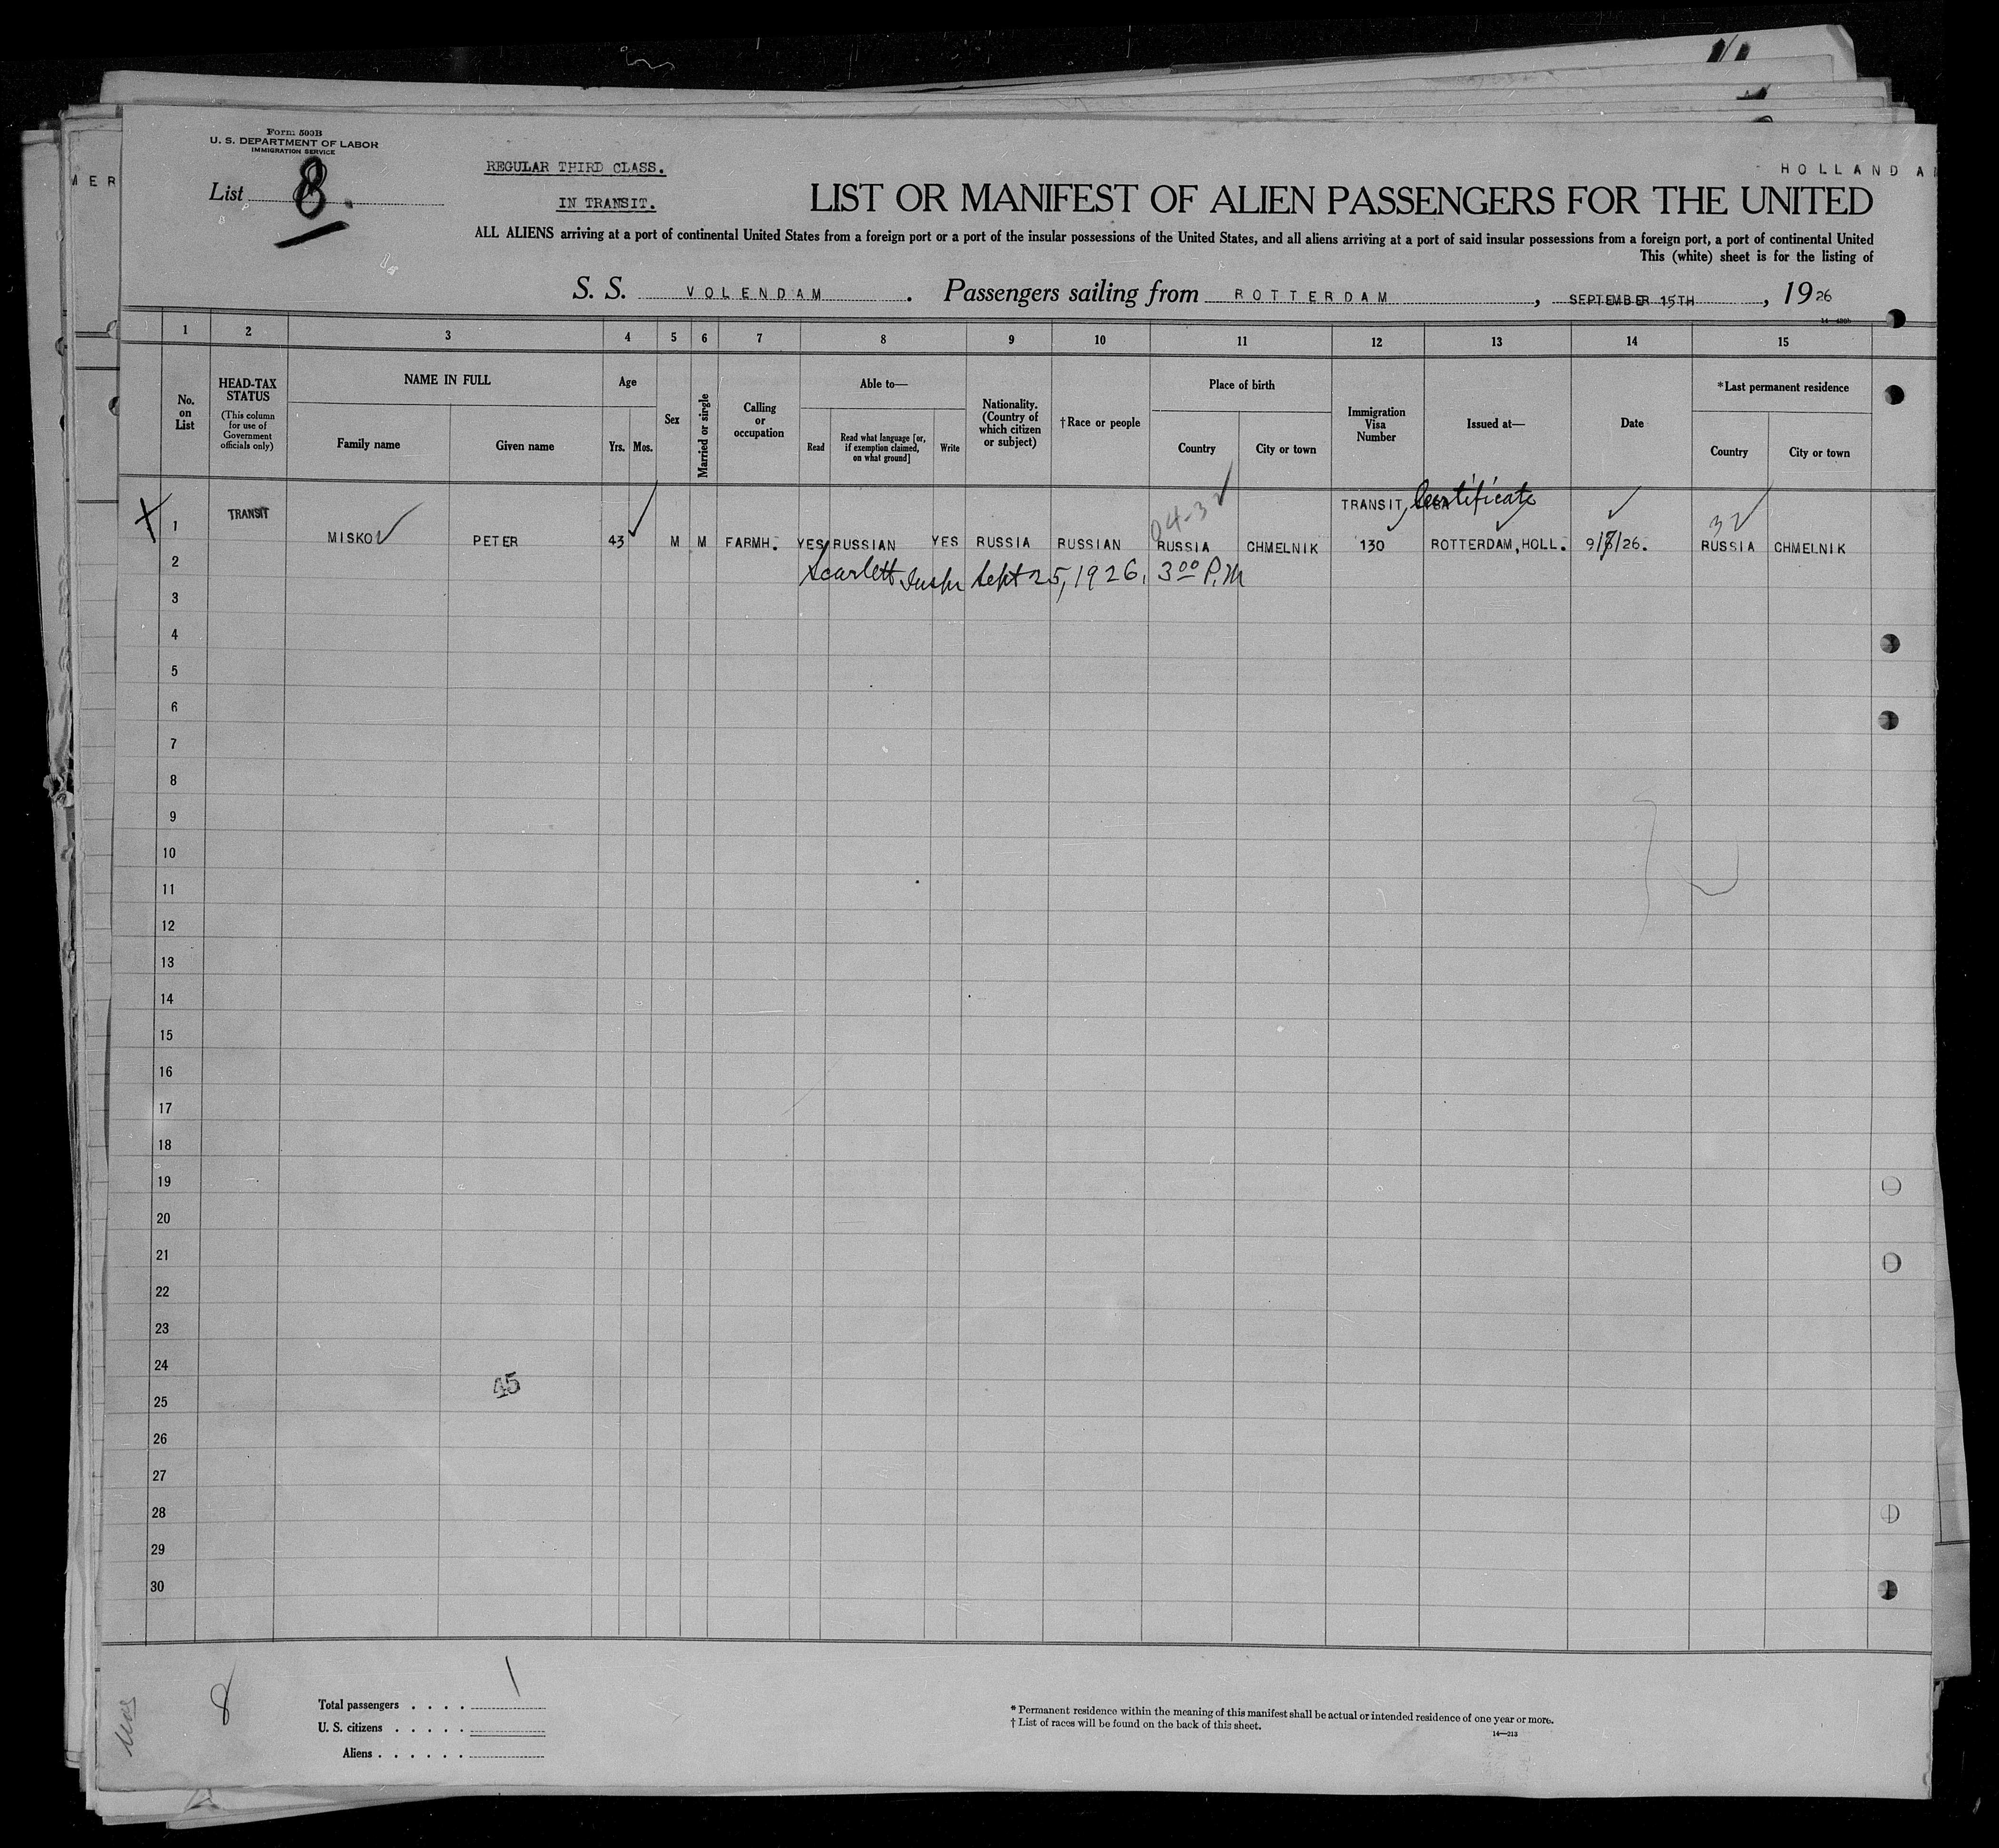 Form 500B
U. S. DEPARTMENT OF LABOR
IMMIGRATION SERVICE
List 8.
REGULAR THIRD CLASS.
IN TRANSIT.
MER
HOLLAND A
LIST OR MANIFEST OF ALIEN PASSENGERS FOR THE UNITED
ALL ALIENS arriving at a port of continental United States from a foreign port or a port of the insular possessions of the United States, and all aliens arriving at a port of said insular possessions from a foreign port, a port of continental United
This (white) sheet is for the listing of
S. S. VOLENDAM. Passengers sailing from ROTTERDAM, SEPTEMBER 15TH, 1926
1 2 3 4 5 6 7 8 9 10 11 12 13 14 15
No. on List
HEAD-TAX STATUS
(This column for use of Government officials only)
NAME IN FULL
Family name
Given name
Age
Yrs. Mos.
Sex
Married or single
Calling or occupation
Able to—
Read
Read what language [or, if exemption claimed, on what ground]
Write
Nationality. (Country of which citizen or subject)
†Race or people
Place of birth
Country
City or town
Immigration Visa Number
Issued at—
Date
*Last permanent residence
Country
City or town
TRANSIT, Certificate
04-3
32
1 TRANSIT MISKO PETER 43 M M FARMH. YES RUSSIAN YES RUSSIA RUSSIAN RUSSIA CHMELNIK 130 ROTTERDAM, HOLL. 9/7/26. RUSSIA CHMELNIK
2 Scarlett Inspr Sept 25, 1926. 3⁰⁰ P.M
3
4
5
6
7
8
9
10
11
12
13
14
15
16
17
18
19
20
21
22
23
24
45
25
26
27
28
29
30
8
Total passengers . . . . 1
U. S. citizens . . . . .
Aliens . . . . . .
* Permanent residence within the meaning of this manifest shall be actual or intended residence of one year or more.
† List of races will be found on the back of this sheet.
14—213